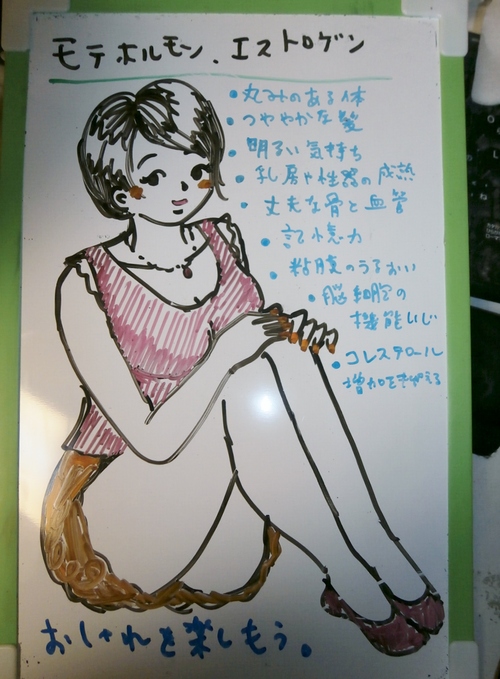 モテホルモン、エストロゲン
・丸みのある体
・つややかな髪
・明るい気持ち
・乳房や性器の成熟
・丈夫な骨と血管
・記憶力
・粘膜のうるおい
・脳細胞の
機能いじ
・コレステロール
増加をおさえる
おしゃれを楽しもう。